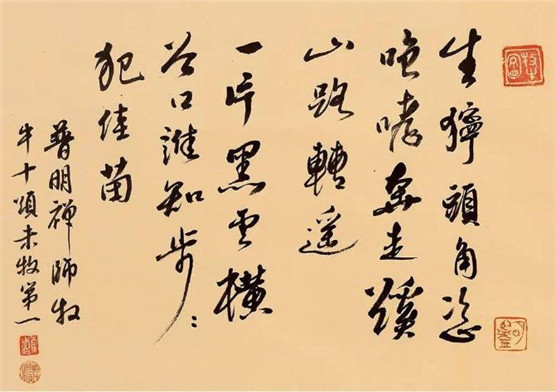 生獰頭角恣
咆哮奔走蹊
山路轉遥
一片黑雲橫
谷口誰知步〻
犯佳苗
普明禪師牧
牛十頌未牧第一